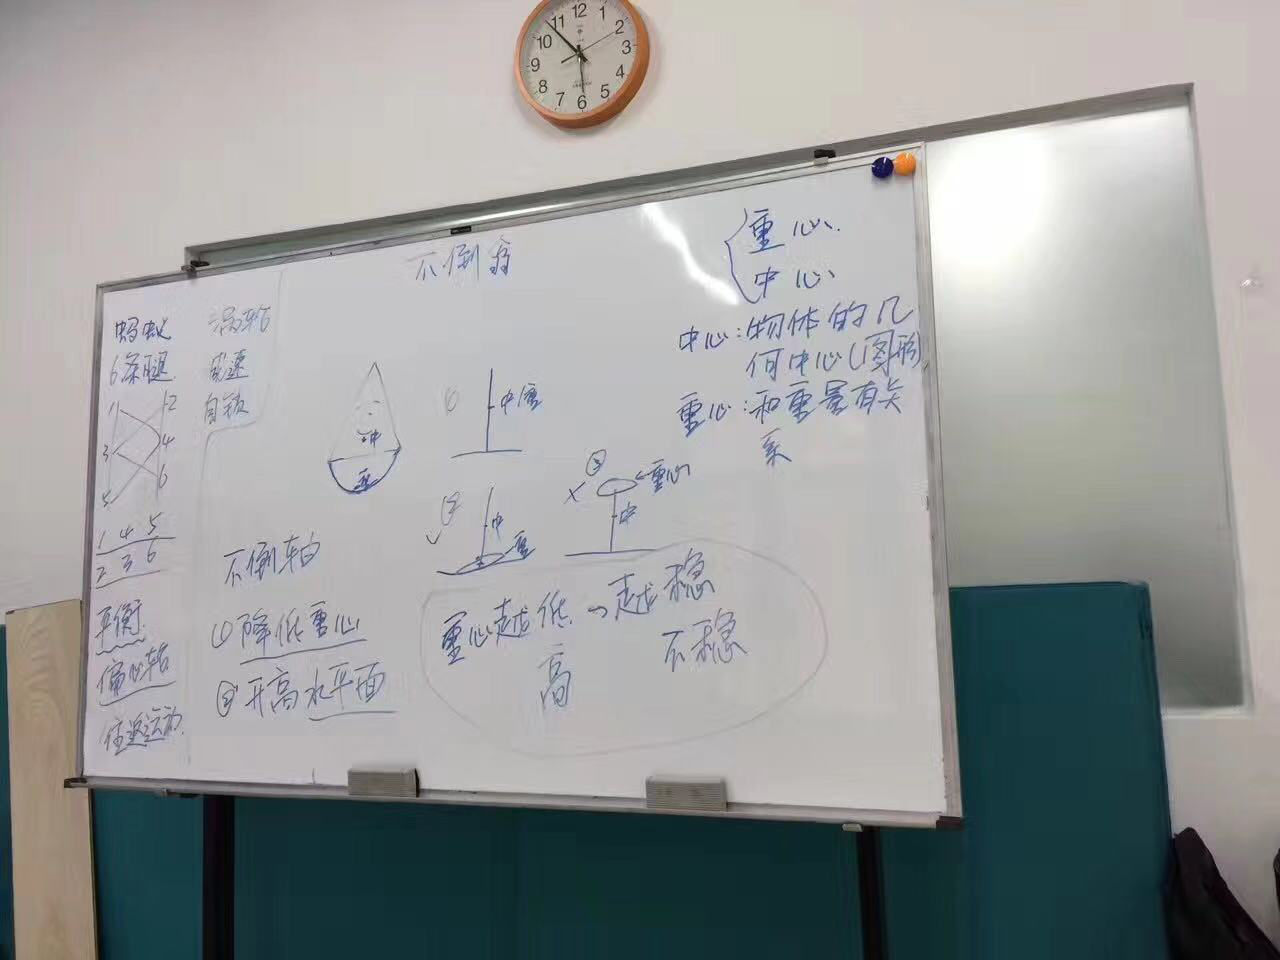 12
1
2
3
4
5
6
7
8
9
10
11
不倒翁
蚂蚁
6条腿
1 2
3 4
5 6
1 4 5
2 3 6
平衡
偏心轮
往返运动
涡轮
减速
自锁
中
重
①
中重
②
中
重
③
重心
中
不倒轴
①降低重心
②升高水平面
重心越低→越稳
高 不稳
重心
中心
中心:物体的几
何中心(图形)
重心:和重量有关
系